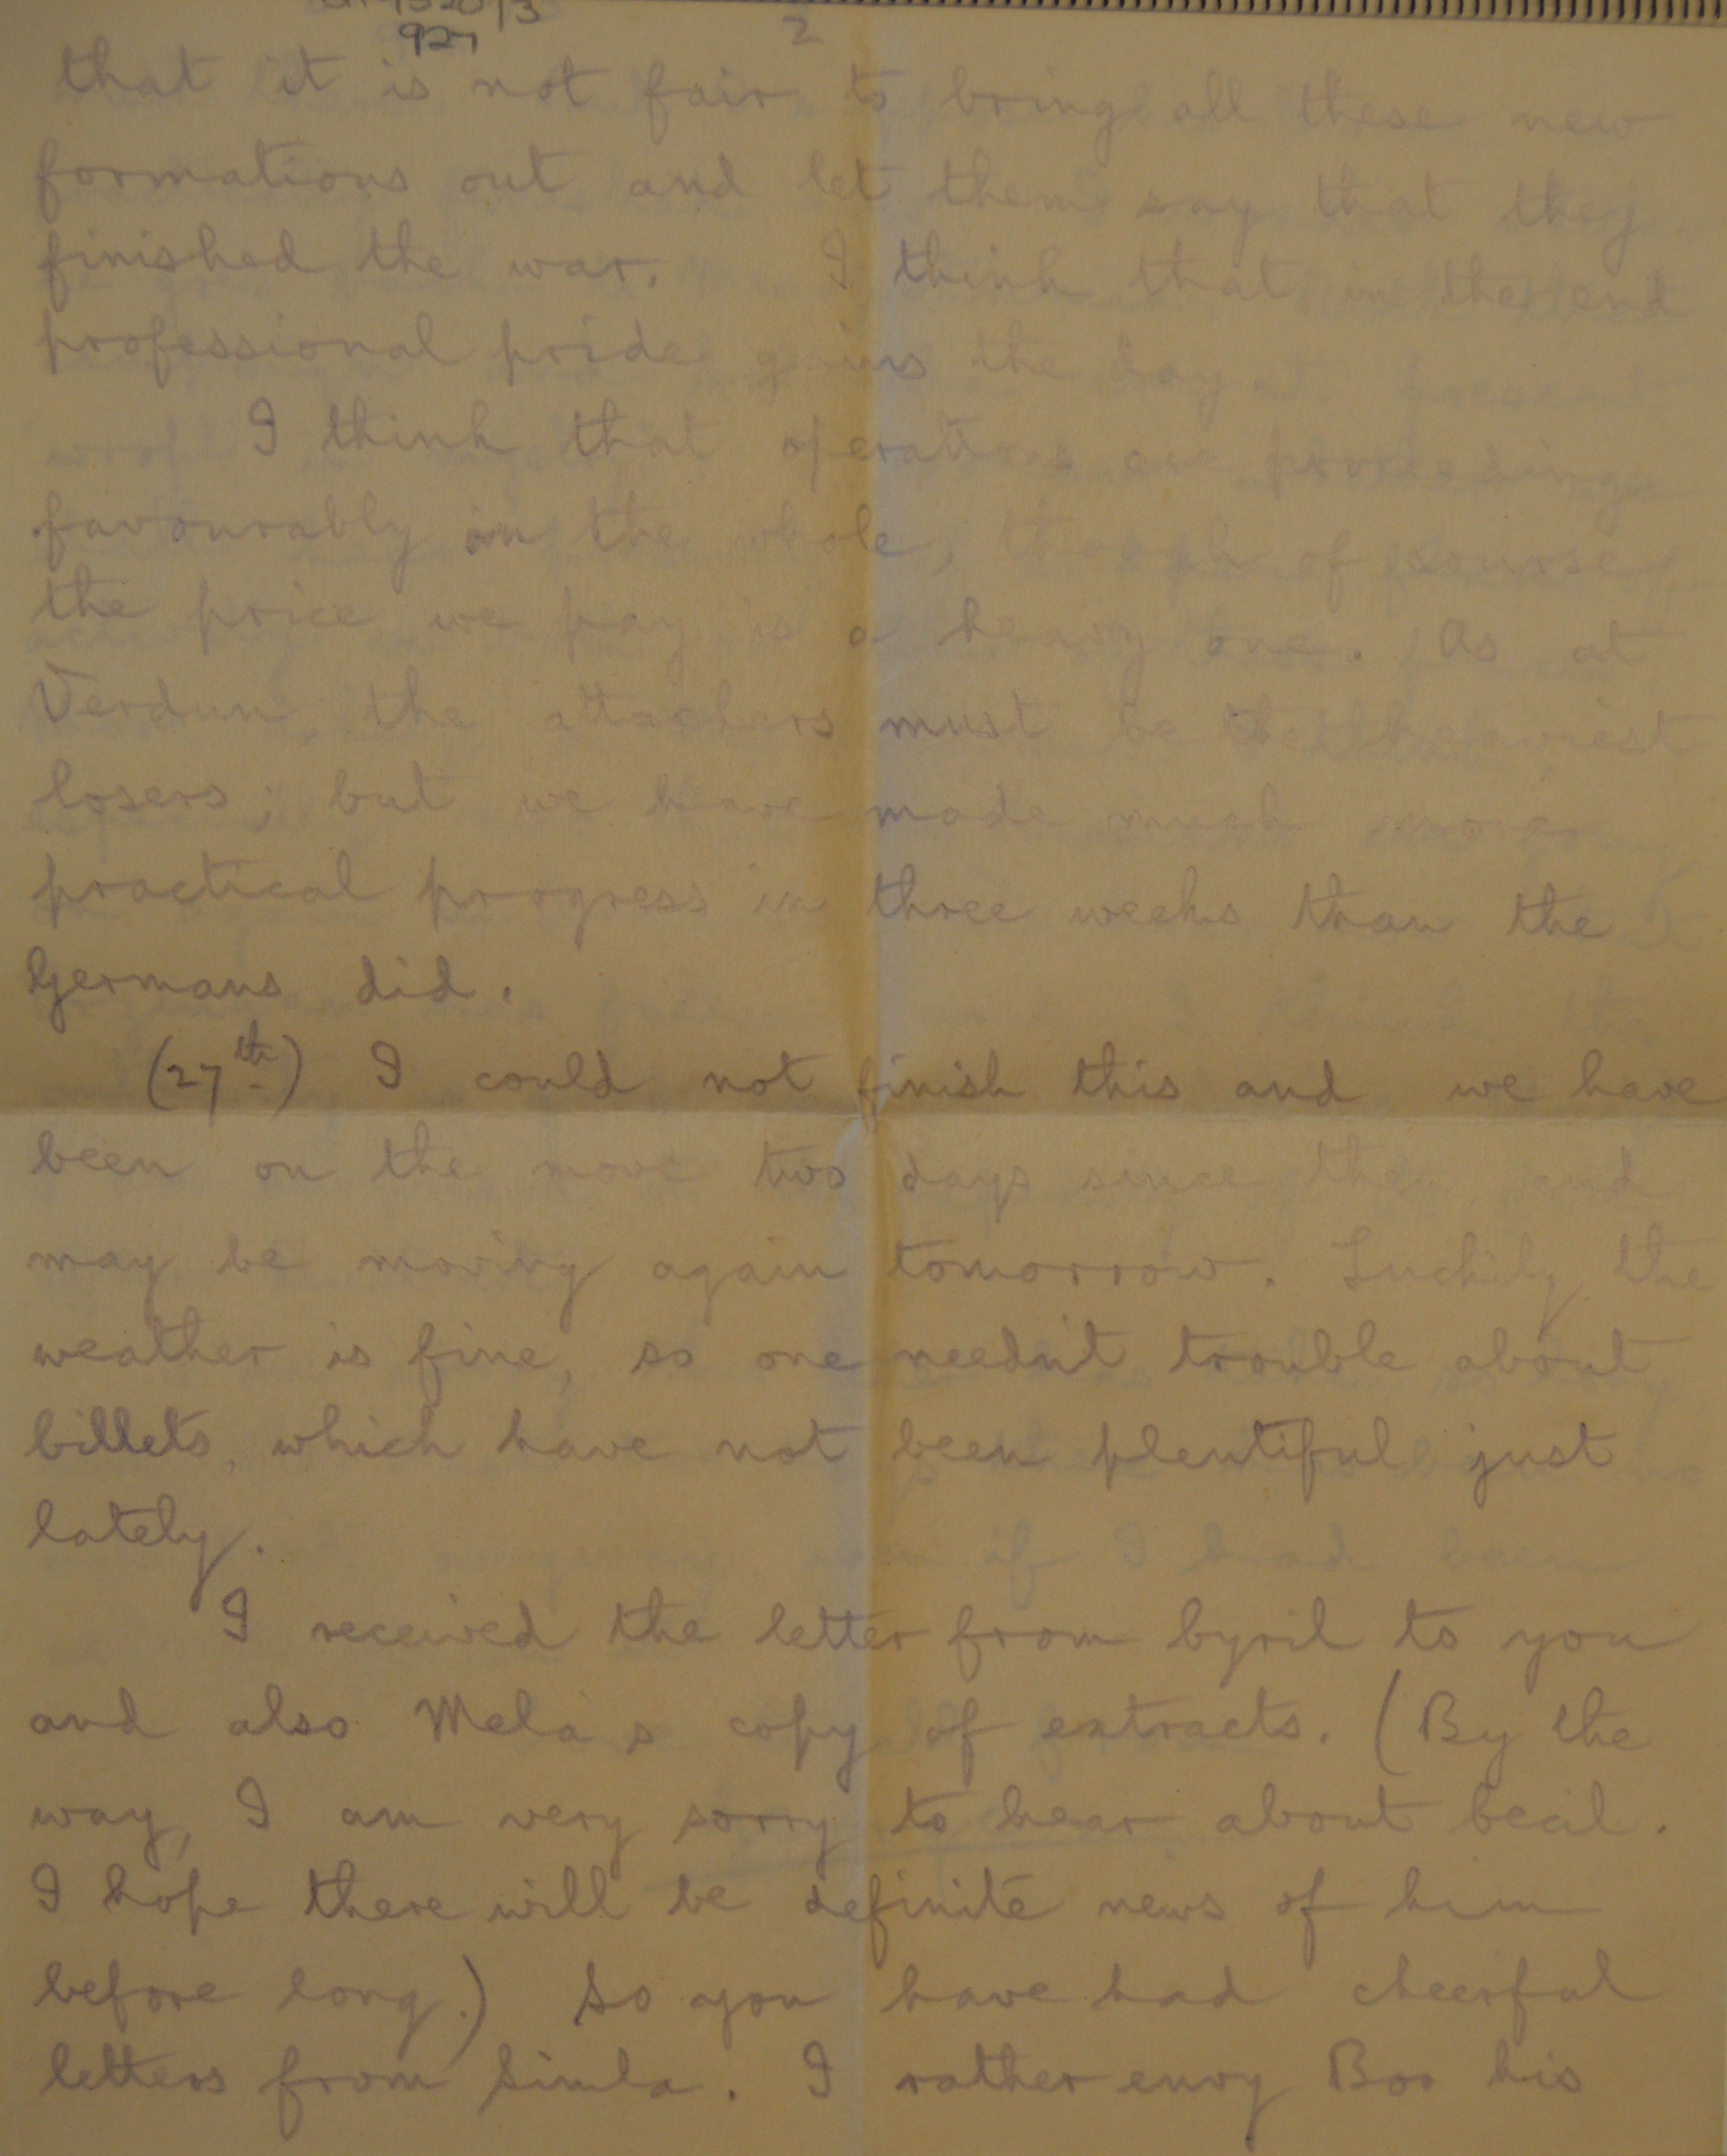 927
2
that it is not fair to bring all these new
formations out and let them say that they
finished the war. I think that in the end
professional pride gains the day.
I think that operations are proceeding
favourably on the whole, though of course
the price we pay is a heavy one. As at
Verdun, the attackers must be the heaviest
losers; but we have made much more
practical progress in three weeks than the
Germans did.
(27th) I could not finish this and we have
been on the move two days since then, and
may be moving again tomorrow. Luckily the
weather is fine, so one needn't trouble about
billets, which have not been plentiful just
lately.
I received the letter from Cyril to you
and also Mela's copy of extracts. (By the
way, I am very sorry to hear about Cecil.
I hope there will be definite news of him
before long.) So you have had cheerful
letters from Simla. I rather envy Boo his